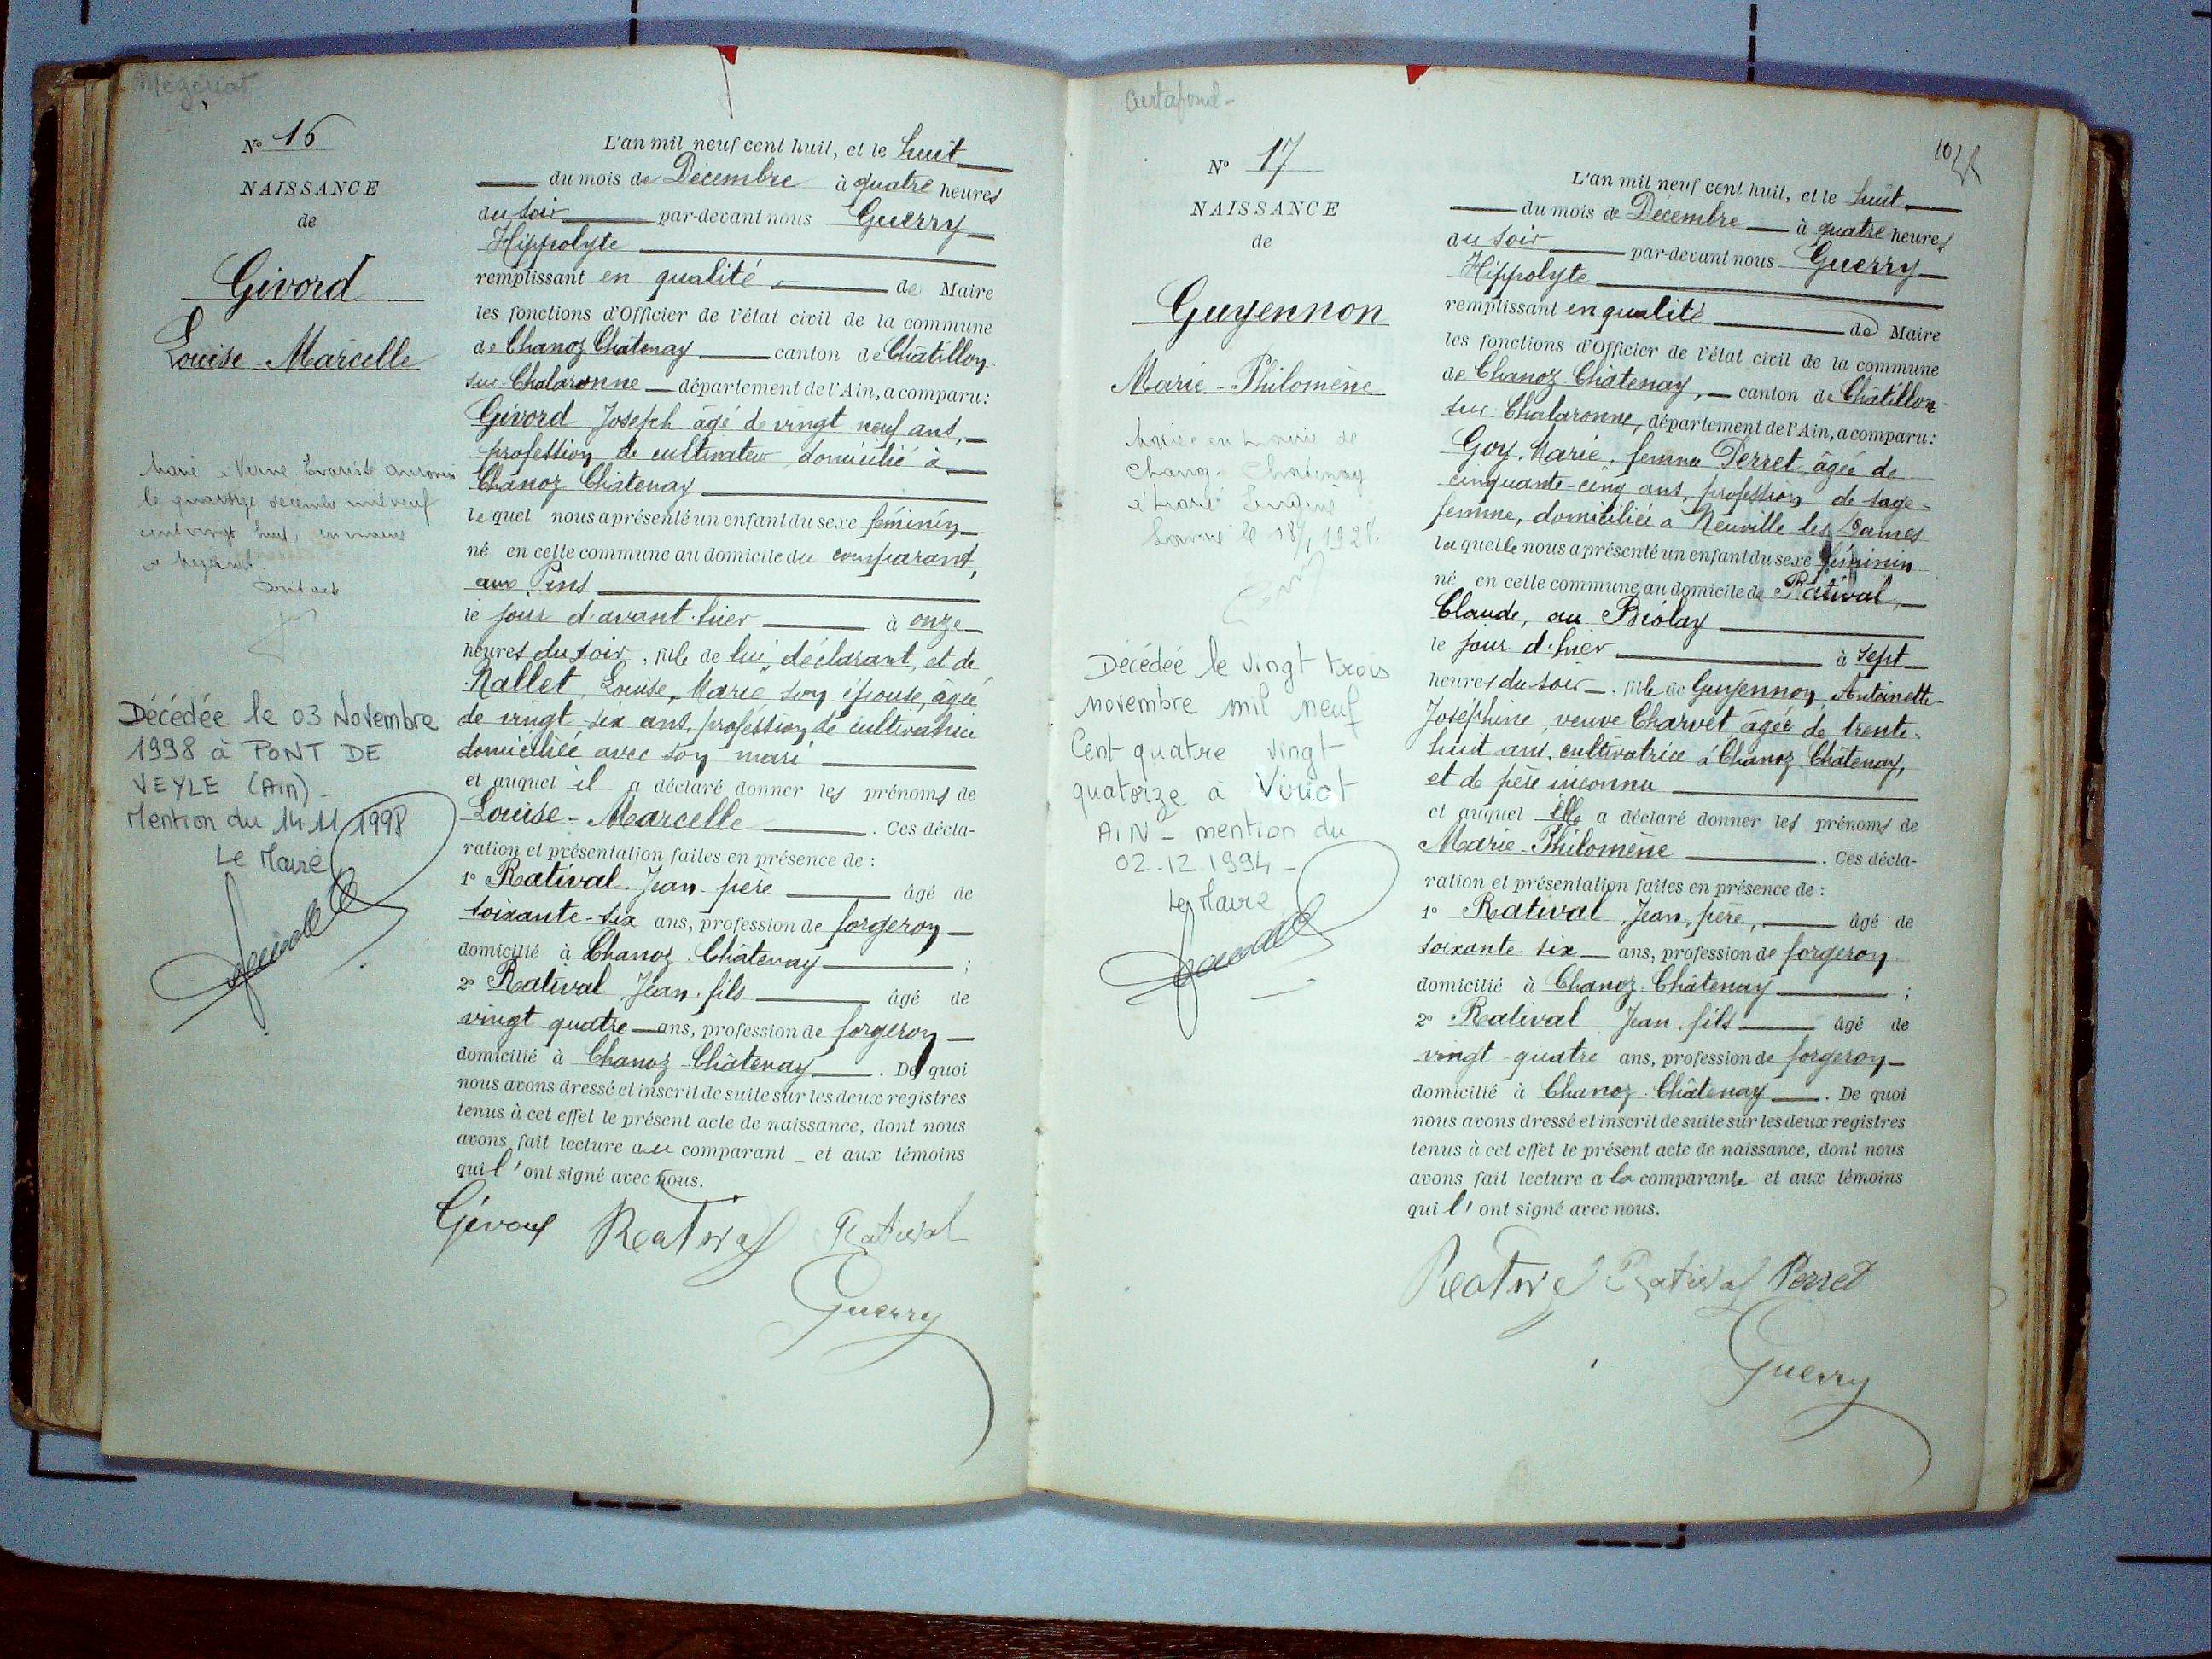 Mézériat
N° 16
NAISSANCE
de
Givord
Louise-Marcelle
le quatorze décembre mil neuf
cent vingt huit, en mairie
Décédée le 03 Novembre
1998 à PONT DE
VEYLE (Ain) -
Mention du 14 11 1998
Le Maire
L'an mil neuf cent huit, et le huit
du mois de Décembre à quatre heures
du soir par-devant nous Guerry
Hippolyte
remplissant en qualité de Maire
les fonctions d'Officier de l'état civil de la commune
de Chanoz Châtenay canton de Châtillon-
sur-Chalaronne département de l'Ain, a comparu:
Givord Joseph âgé de vingt neuf ans,
profession de cultivateur domicilié à
Chanoz Châtenay
lequel nous a présenté un enfant du sexe féminin
né en cette commune au domicile du comparant,
aux Pins
le jour d'avant-hier à onze
heures du soir, fille de lui déclarant, et de
Nallet, Louise, Marie son épouse, âgée
de vingt-six ans, profession de cultivatrice
domiciliée avec son mari
et auquel il a déclaré donner les prénoms de
Louise-Marcelle. Ces décla-
ration et présentation faites en présence de :
1° Ratival Jean-père âgé de
soixante-six ans, profession de forgeron
domicilié à Chanoz-Châtenay ;
2° Ratival Jean-fils âgé de
vingt quatre ans, profession de forgeron
domicilié à Chanoz-Châtenay. De quoi
nous avons dressé et inscrit de suite sur les deux registres
tenus à cet effet le présent acte de naissance, dont nous
avons fait lecture au comparant et aux témoins
qui l'ont signé avec nous.
Givord Ratival Ratival
Guerry
Curtafond-
102
N° 17
NAISSANCE
de
Guyennon
Marie-Philomène
Mariée en mairie de
Chanoz-Châtenay
le 18/1 1928
Décédée le vingt trois
novembre mil neuf
Cent quatre vingt
quatorze à Viriat
AIN - mention du
02.12.1994 -
Le Maire
L'an mil neuf cent huit, et le huit
du mois de Décembre à quatre heures
du soir par-devant nous Guerry
Hippolyte
remplissant en qualité de Maire
les fonctions d'Officier de l'état civil de la commune
de Chanoz-Châtenay, canton de Châtillon-
sur-Chalaronne, département de l'Ain, a comparu:
Goy, Marie, femme Perret âgée de
cinquante-cinq ans, profession de sage-
femme, domiciliée à Neuville les Dames
laquelle nous a présenté un enfant du sexe féminin
né en cette commune au domicile de Ratival,
Claude, au Biolay
le jour d'hier à sept
heures du soir, fille de Guyennon, Antoinette-
Joséphine, veuve Charvet âgée de trente-
huit ans, cultivatrice à Chanoz-Châtenay,
et de père inconnu
et auquel elle a déclaré donner les prénoms de
Marie-Philomène. Ces décla-
ration et présentation faites en présence de :
1° Ratival, Jean, père, âgé de
soixante-six ans, profession de forgeron
domicilié à Chanoz-Châtenay ;
2° Ratival Jean fils âgé de
vingt-quatre ans, profession de forgeron
domicilié à Chanoz-Châtenay. De quoi
nous avons dressé et inscrit de suite sur les deux registres
tenus à cet effet le présent acte de naissance, dont nous
avons fait lecture a la comparante et aux témoins
qui l'ont signé avec nous.
Ratival Ratival Perret
Guerry